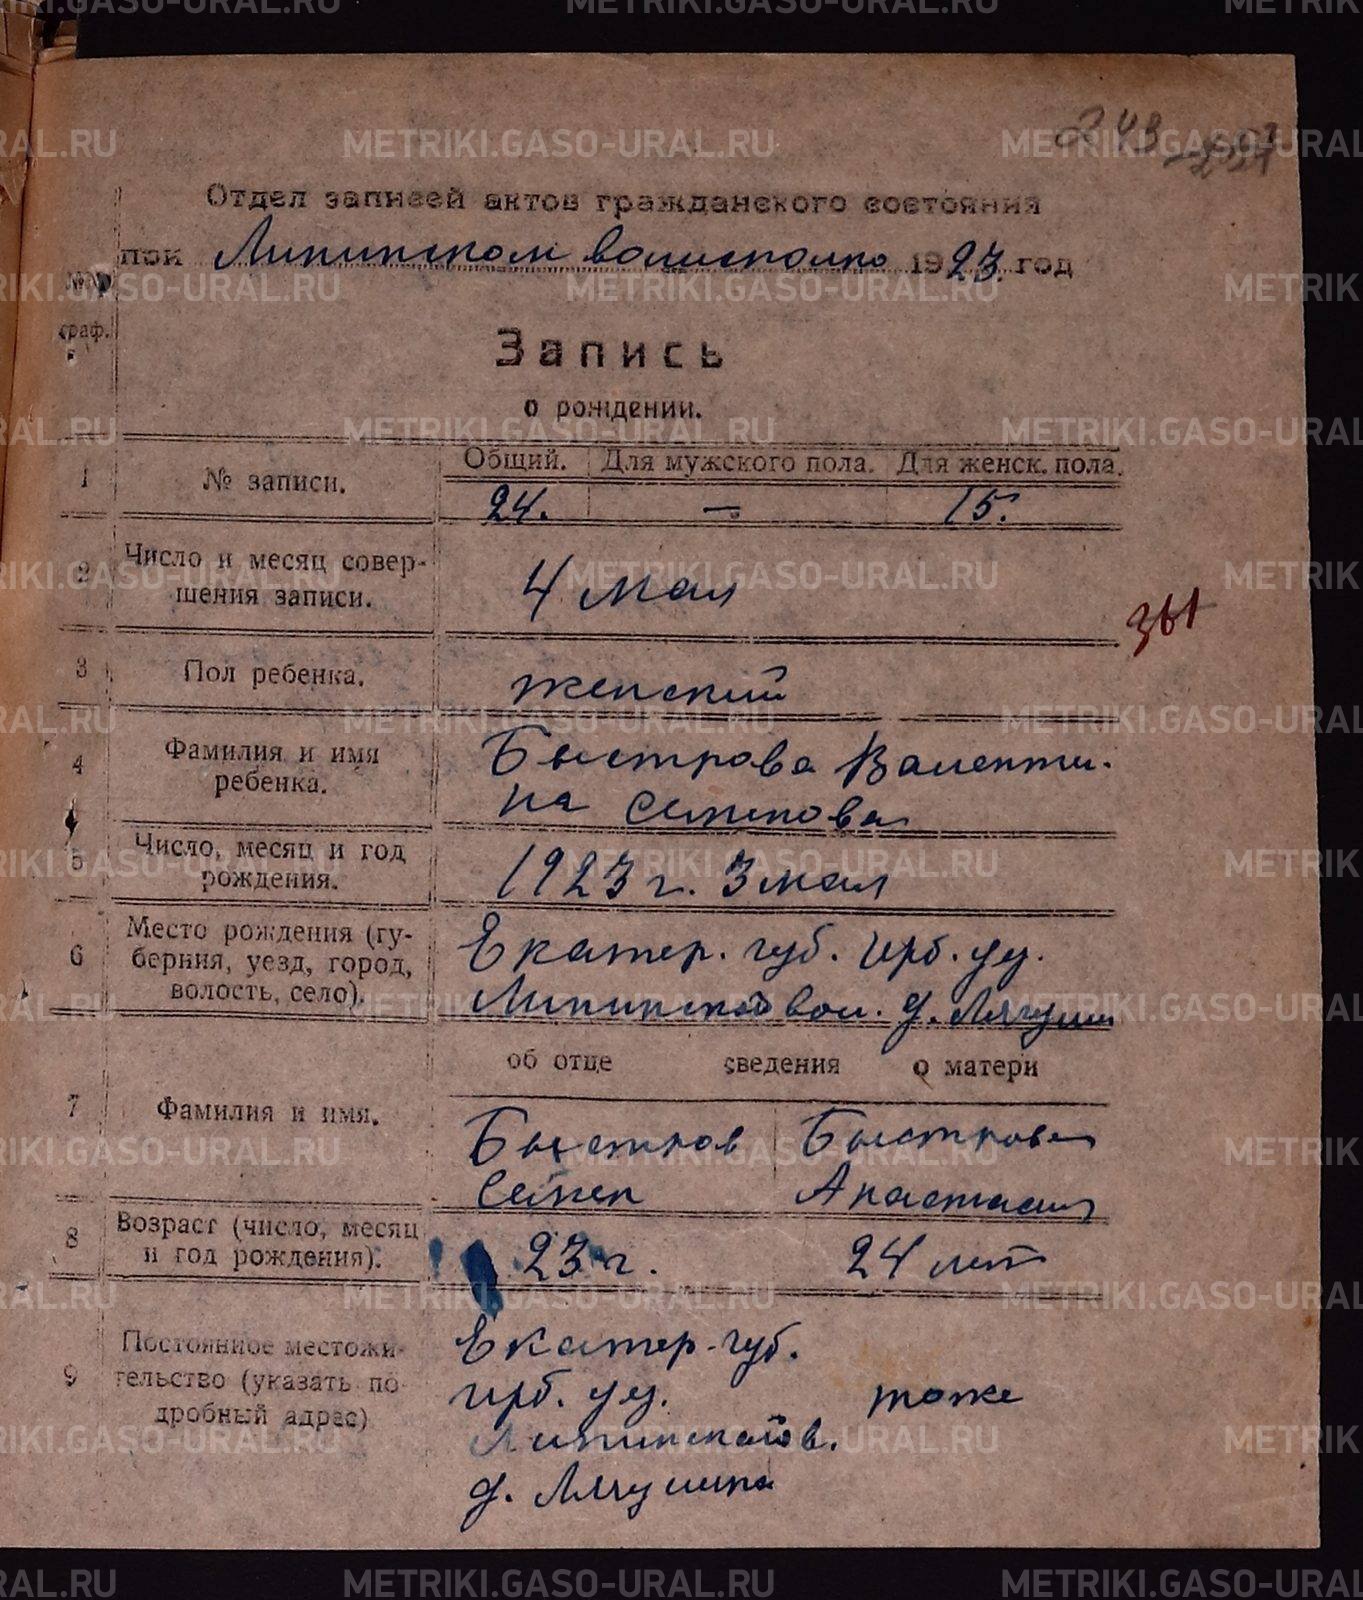 248
Отдел записей актов гражданского состояния
при Липинском волисполко 1923 год
№№
граф.
Запись
о рождении.
1 № записи. Общий. Для мужского пола. Для женск. пола.
24. — 15.
2 Число и месяц совер-
шения записи. 4 мая
361
3 Пол ребенка. женский
4 Фамилия и имя
ребенка. Быстрова Валенти-
на Семенова
5 Число, месяц и год
рождения. 1923 г. 3 мая
6 Место рождения (гу-
берния, уезд, город,
волость, село). Екатер. губ. Ирб. уез.
Липинской вол. д. Лягуши
об отце сведения о матери
7 Фамилия и имя. Быстров Быстрова
Семен Анастасия
8 Возраст (число, месяц
и год рождения). 23 г. 24 лет
9 Постоянное местожи-
тельство (указать по-
дробный адрес) Екатер. губ.
Ирб. уез. тоже
Липинской в.
д. Лягушина
METRIKI.GASO-URAL.RU